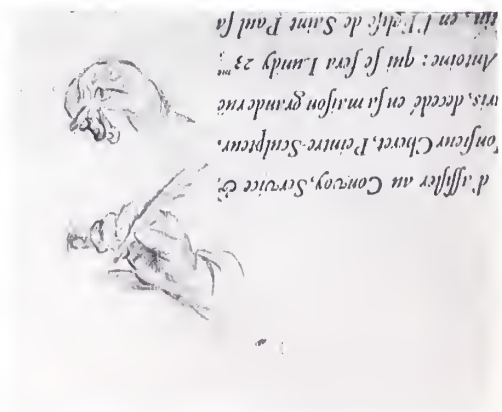 d'aſſiſter au Convoy, Service &
onſieur Cheret, Peintre-Sculpteur,
decedé en ſa maiſon grande rüe
Antoine : qui ſe fera Lundy 23.me
tin, en l'Egliſe de Saint Paul ſa